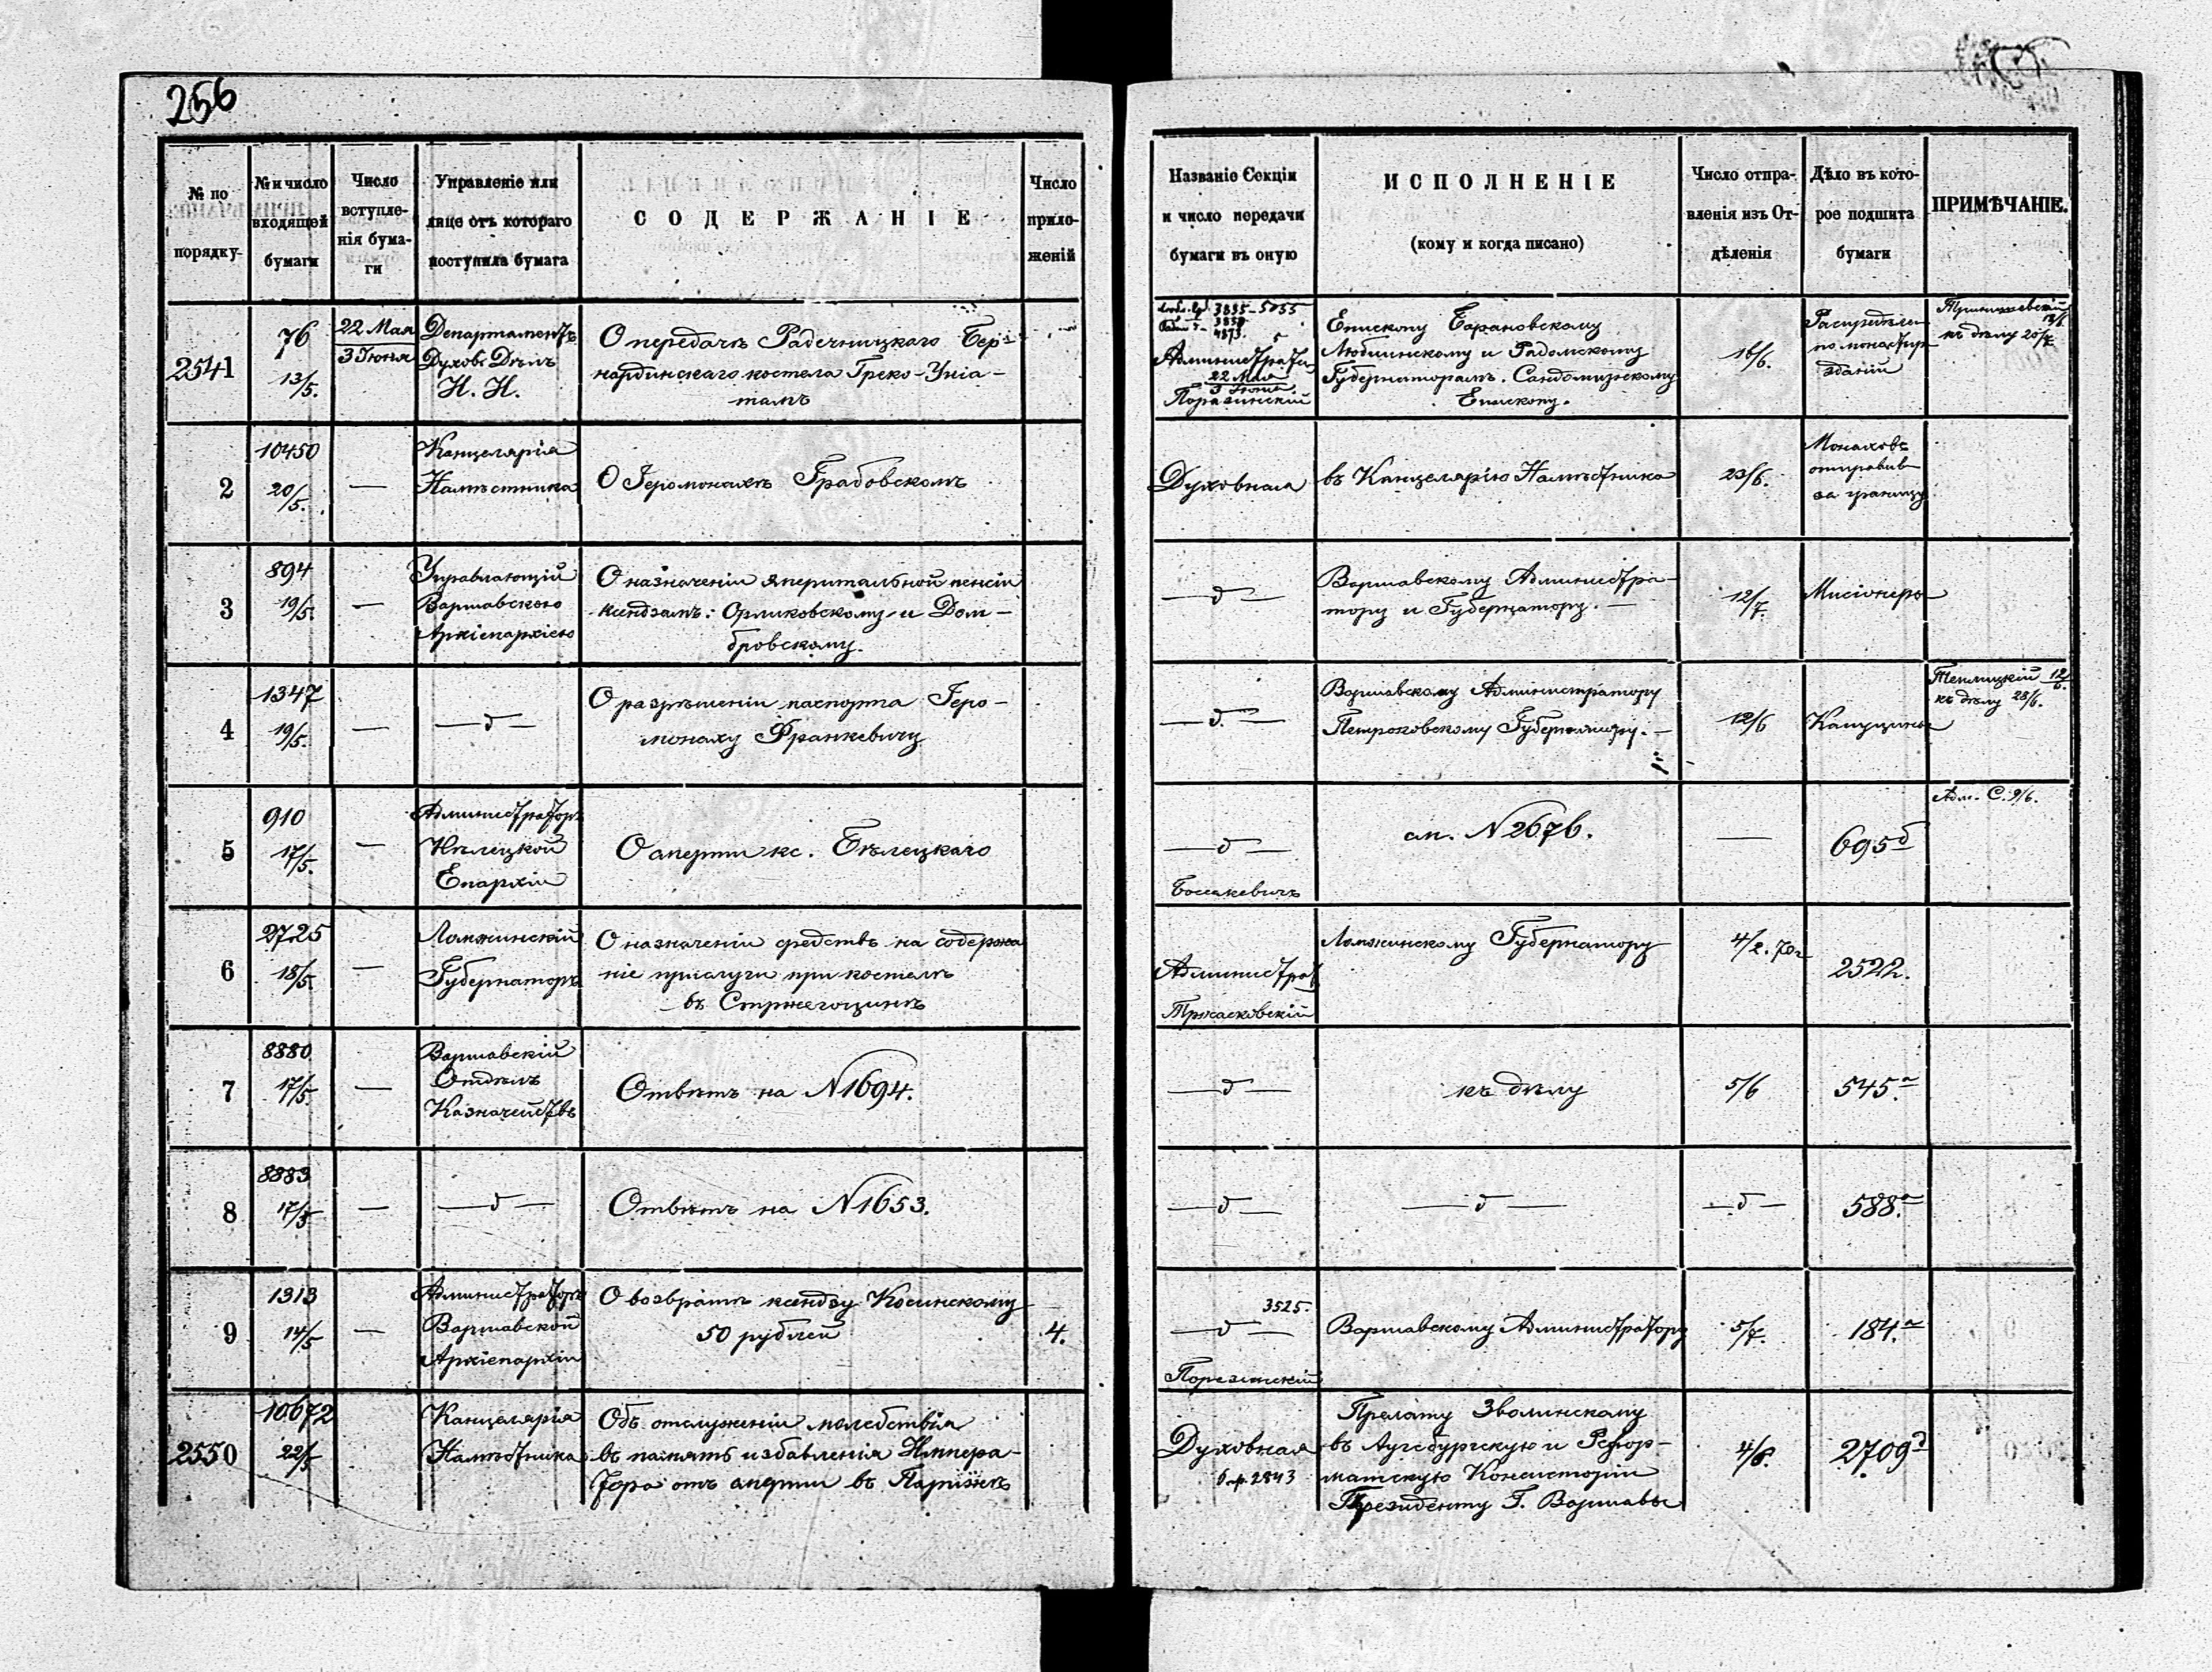 256
№ по порядку
№ и число входящей бумаги
Число вступле-нія бума-ги
Управленіе или лице отъ котораго поступила бумага
СОДЕРЖАНІЕ
Число прило-женій
Названіе Секціи и число передачи бумаги въ оную
ИСПОЛНЕНІЕ
(кому и когда писано)
Число отпра-вленія изъ От-дѣленія
Дѣло въ кото-рое подшита бумаги
ПРИМѢЧАНІЕ.
2541
76
13/5.
22 Мая
3 Іюня
Департаментъ
Духовъ Дѣлъ
И. И.
О передачѣ Радечницкаго Бер-
нардинскаго костела Греко-Уніа-
тамъ
3835-5055
4873.
22 Мая
3 Іюня
Поразинскій
Епископу Барановскому
Люблинскому и Радомскому
Губернаторамъ. Сандомирскому
Епископу.
16/6.
зданій
къ дѣлу
2
10450
20/5.
—
Канцелярія
Намѣстника
О Іеромонахѣ Грабовскомъ
Духовная
въ Канцелярію Намѣстника
23/6.
Монаховъ
отправив
за границу
3
894
19/5.
—
Управляющій
Варшавскою
Архіепархіею
О назначеніи эмеритальной пенсіи
ксендзамъ: Орликовскому и Дом-
бровскому.
—д—
Варшавскому Администра-
тору и Губернатору. —
12/7.
Мисіонеры
4
1347
19/5.
—
—д—
О разрѣшеніи паспорта Іеро-
монаху Франкевичу
—д—
Варшавскому Администратору
Петроковскому Губернатору. —
12/6
Капуцины
къ дѣлу 28/6.
5
910
17/5.
—
Администраторъ
Кѣлецкой
Епархіи
О смерти кс. Бѣлецкаго
—д—
см. N 2676.
—
695б
Адм. С. 9/6.
6
2725
18/5.
—
Ломжинскій
Губернаторъ
О назначеніи средствъ на содержа
ніе прислуги при костелѣ
въ Стржегоцинѣ
Администрат
Тржасковскій
Ломжинскому Губернатору
4/2. 70г
2522.
7
8880
17/5.
—
Варшавскій
Отдѣлъ
Казначействъ
Отвѣтъ на N 1694.
—д—
къ дѣлу
5/6
545.а
8
8883
17/5
—
—д—
Отвѣтъ на N 1653.
—д—
—д—
—д—
588.а
9
1313
14/5
—
Администраторъ
Варшавской
Архіепархіи
О возвратѣ ксендзу Косинскому
50 рублей
4.
3525.
—д—
Поразинскій
Варшавскому Администратору
5/7.
184.а
2550
10672
22/5
Канцелярія
Намѣстника
Объ отслуженіи молебствія
въ память избавленія Импера-
тора отъ смерти въ Парижѣ
Духовная
2843
Прелату Зволинскому
въ Аугсбургскую и Рефор-
матскую Консисторіи
Президенту Г. Варшавы
4/6.
2709д